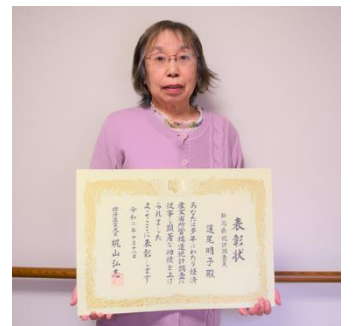 表彰状
新潟県統計調査員
蓮尾明子殿
あなたは多年にわたり経済
産業省所管構造統計調査に
従事し顕著な功績を上げ
られました
よってここに表彰します
令和二年十月十八日
経済産業大臣
梶山弘志